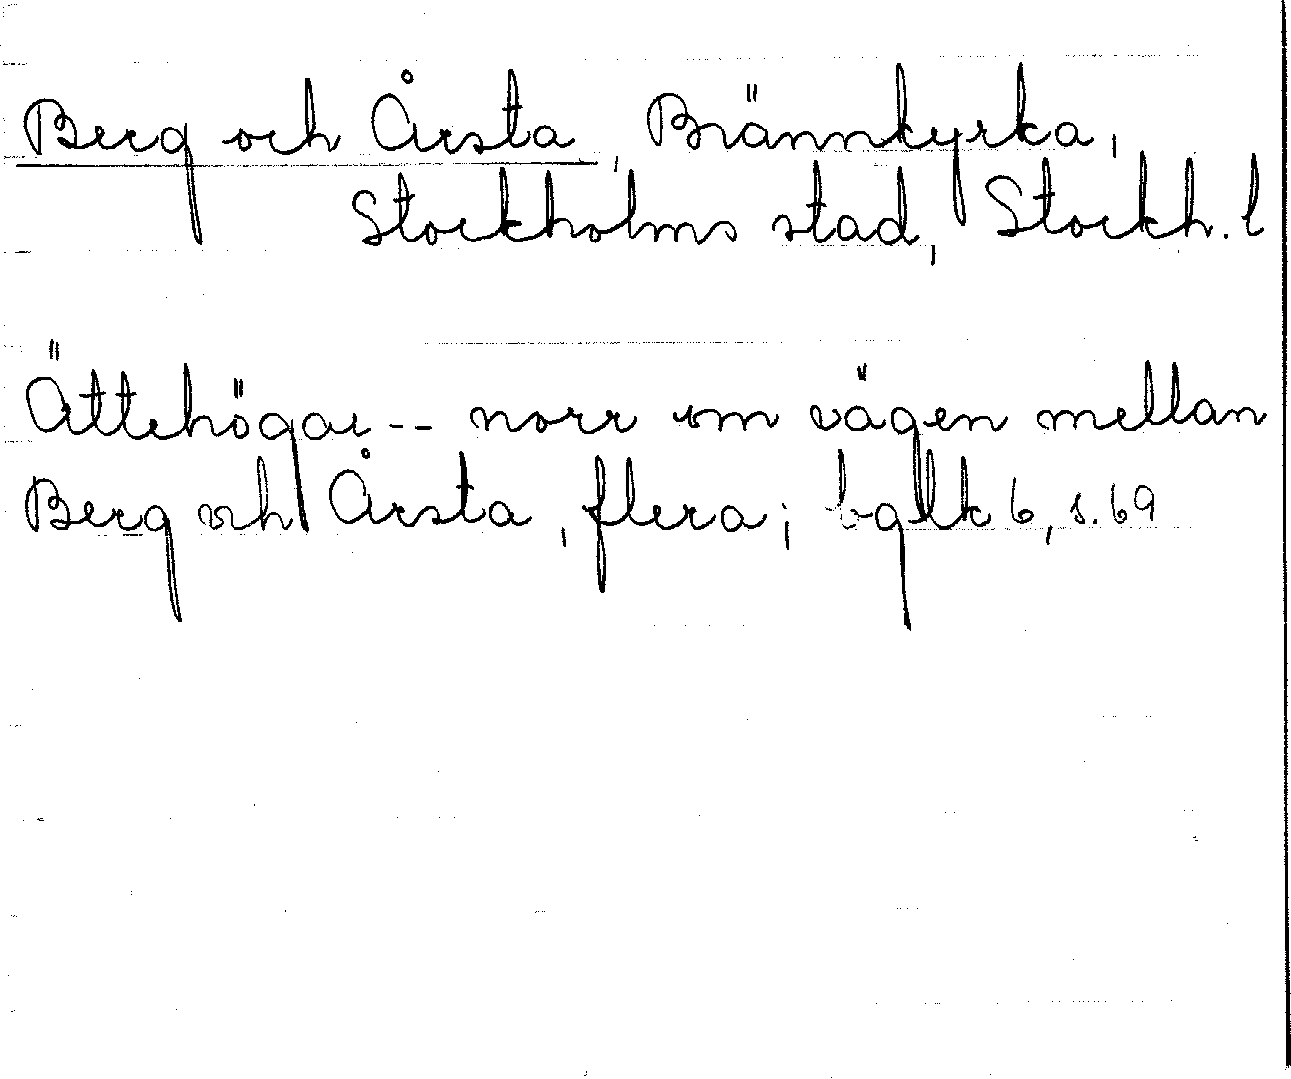 Berg och Årsta, Brännkyrka,
Stockholms stad, Stockh. l
Ättehögar -- norr om vägen mellan
Berg och Årsta, flera; bglk 6, s. 69